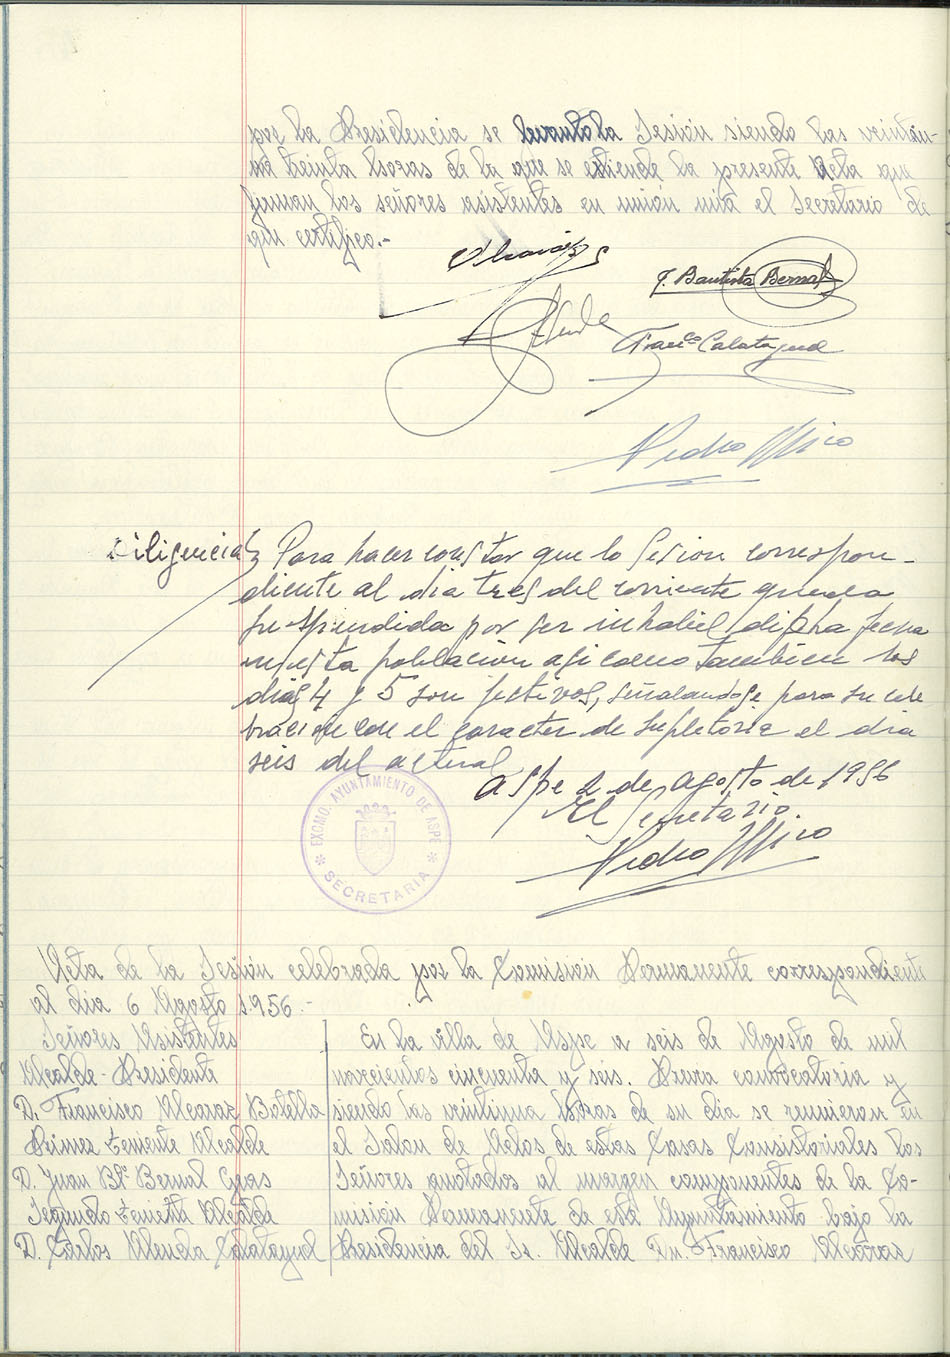 por la Presidencia se levantó la Sesión siendo las veintiu-
na treinta horas de la que se estiende la presente Acta que
firman los señores asistentes en unión mia el Secretario de
que certifico.-
J. Bautista Bernal
Franco Calatayud
Pedro Miro
Diligencia Para hacer constar que la Sesion correspon-
diente al dia tres del corriente queda
suspendida por ser inhabil dicha fecha
en esta población asi como tambien los
dias 4 y 5 son festivos, señalandose para su cele
bracion con el caracter de supletoria el dia
seis del actual
Aspe 2 de Agosto de 1956
El Secretario.
Pedro Miro
EXCMO. AYUNTAMIENTO DE ASPE
* SECRETARIA *
Acta de la Sesión celebrada por la Comisión Permanente correspondiente
al dia 6 Agosto 1.956.-
Señores Asistentes
Alcalde-Presidente
D. Francisco Alcaraz Botella
Primer Teniente Alcalde
D. Juan Bta Bernal
Segundo Teniente Alcalde
D. Carlos Calatayud
En la villa de Aspe a seis de Agosto de mil
novecientos cincuenta y seis. Previa convocatoria y
siendo las veintiuna horas de su dia se reunieron en
el Salon de Actos de estas Casas Consistoriales los
Señores anotados al margen componentes de la Co-
misión Permanente de este Ayuntamiento bajo la
Presidencia del Sr. Alcalde Dn. Francisco Alcaraz